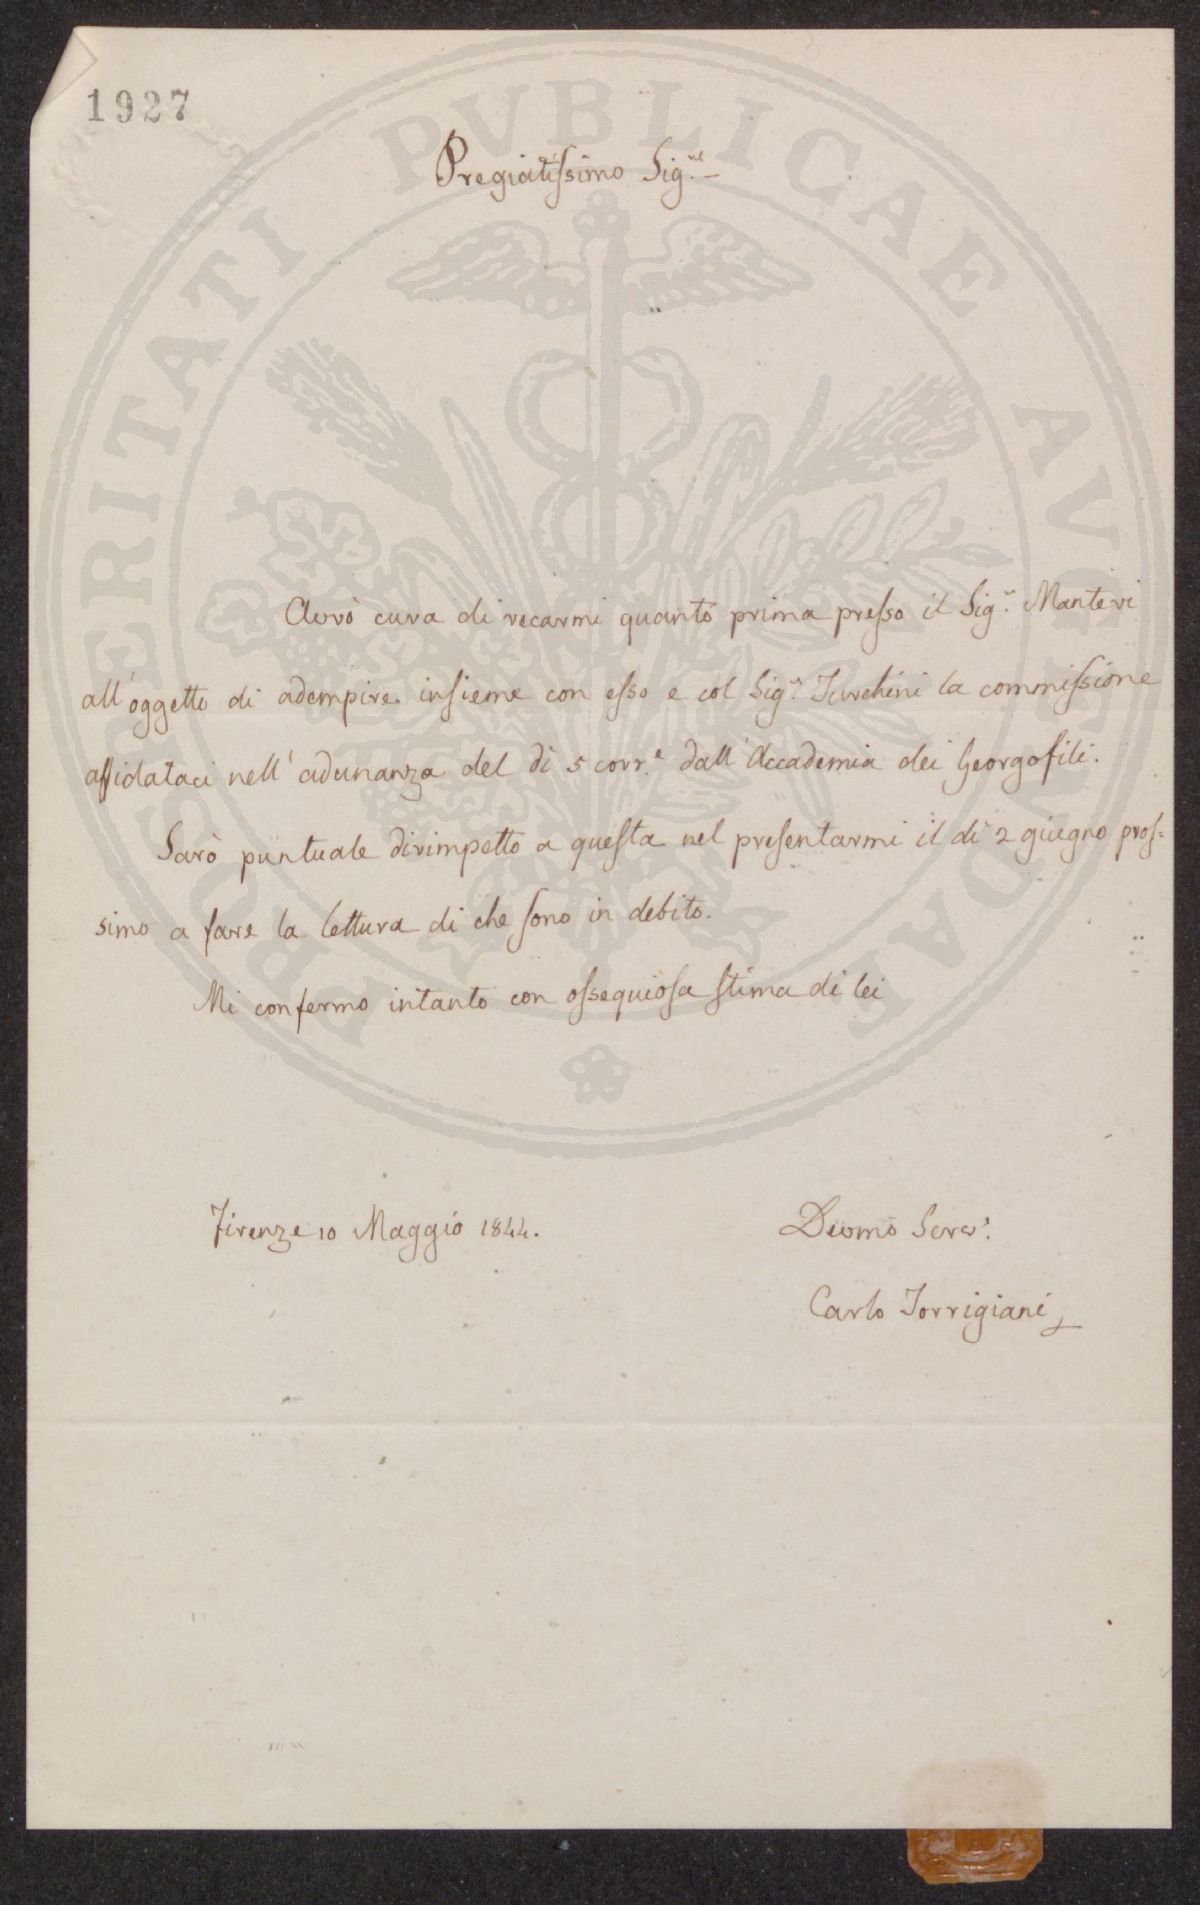 1927
Pregiatissimo Sig.re
Avrò cura di recarmi quanto prima presso il Sig.r Manteri
all'oggetto di adempire insieme con esso e col Sig.r Turchini la commissione
affidataci nell'adunanza del dì 5 corr.e dall'Accademia dei Georgofili.
Sarò puntuale dirimpetto a questa nel presentarmi il dì 2 giugno pros=
simo a fare la lettura di che sono in debito.
Mi confermo intanto con ossequiosa stima di lei
Firenze 10 Maggio 1844.
Devmo Serv.
Carlo Torrigiani
PROSPERITATI PVBLICAE AVGENDAE